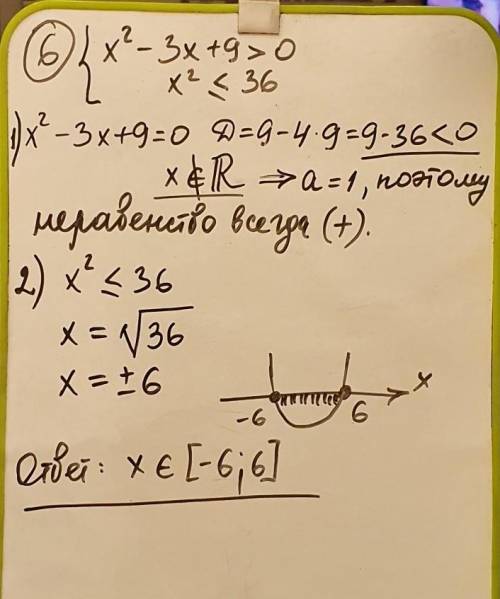 ⑥ { x² - 3x + 9 > 0
x² ≤ 36
1) x² - 3x + 9 = 0 Д = 9 - 4·9 = 9 - 36 < 0
x ∉ ℝ ⇒ a = 1, поэтому
неравенство всегда (+).
2) x² ≤ 36
x = √36
x = ±6
-6 6 x
Ответ: x ∈ [-6; 6]